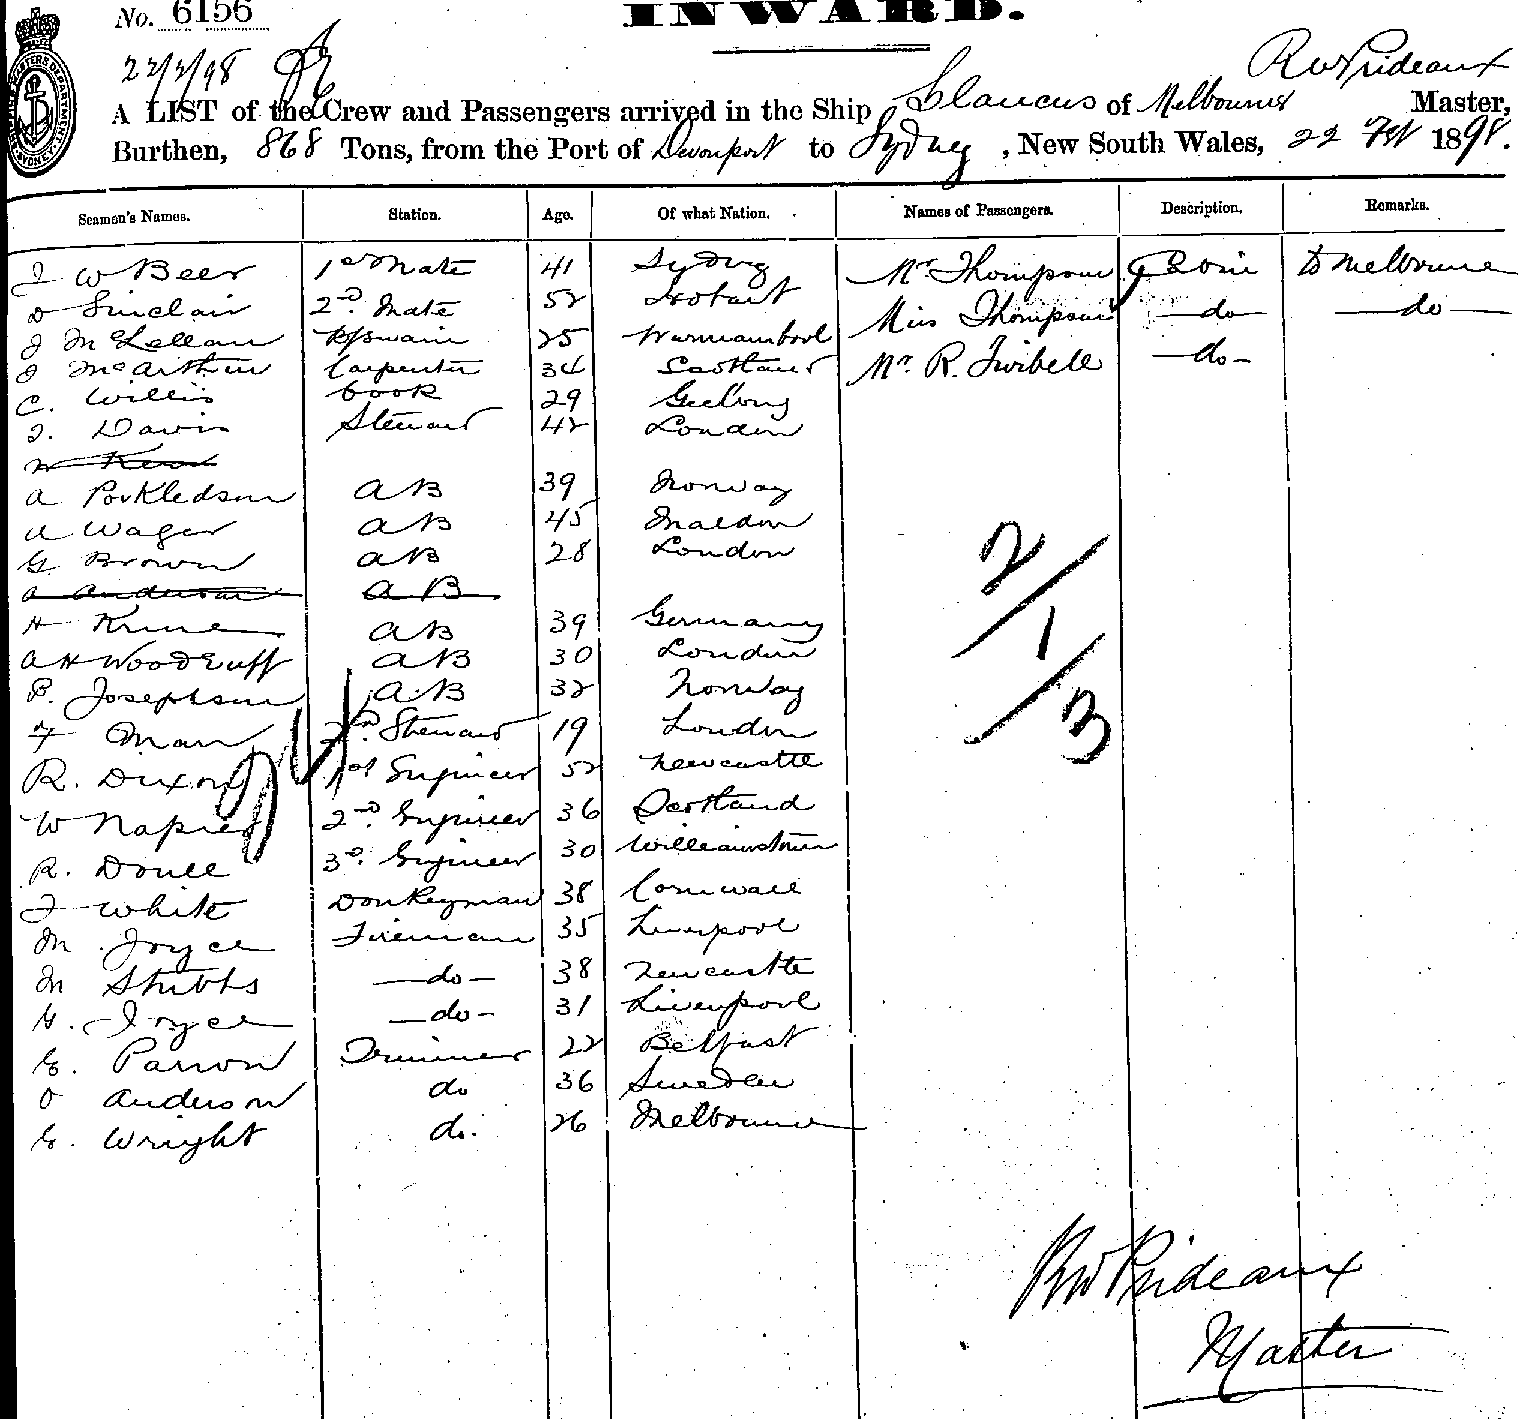 No. 6156
INWARD.
22/2/98
R W Prideaux
A LIST of the Crew and Passengers arrived in the Ship Glaucus of Melbourne Master,
Burthen, 868 Tons, from the Port of Devonport to Sydney, New South Wales, 22 Feb 1898.
Seamen's Names. Station. Age. Of what Nation. Names of Passengers. Description. Remarks.
J W Beer 1st Mate 41 Sydney Mr Thompson Cabin to Melbourne
D Sinclair 2nd Mate 52 Hobart Miss Thompson do do
J McLellan Boswain 25 Warrnambool
J McArthur Carpenter 34 Scotland Mr. R. Twibell do
C. Willis Cook 29 Geelong
J. Davis Steward 42 London
W Kerr
A Porkledson AB 39 Norway
A Wager AB 45 Maldon
G Brown AB 28 London
A Anderson AB
H Kruse AB 39 Germany
A H Woodruff AB 30 London
P. Josephson AB 32 Norway
F Man 2nd Steward 19 London
R. Dixon 1st Engineer 52 Newcastle
W Napier 2nd Engineer 36 Scotland
R. Doull 3rd Engineer 30 Williamstown
J White Donkeyman 38 Cornwall
M Joyce Fireman 35 Liverpool
M Stubbs do 38 Newcastle
G. Joyce do 31 Liverpool
G. Parron Trimmer 22 Belfast
O Anderson do 36 Sweden
G. Wright do. 26 Melbourne
2/1/3
24
R W Prideaux
Master